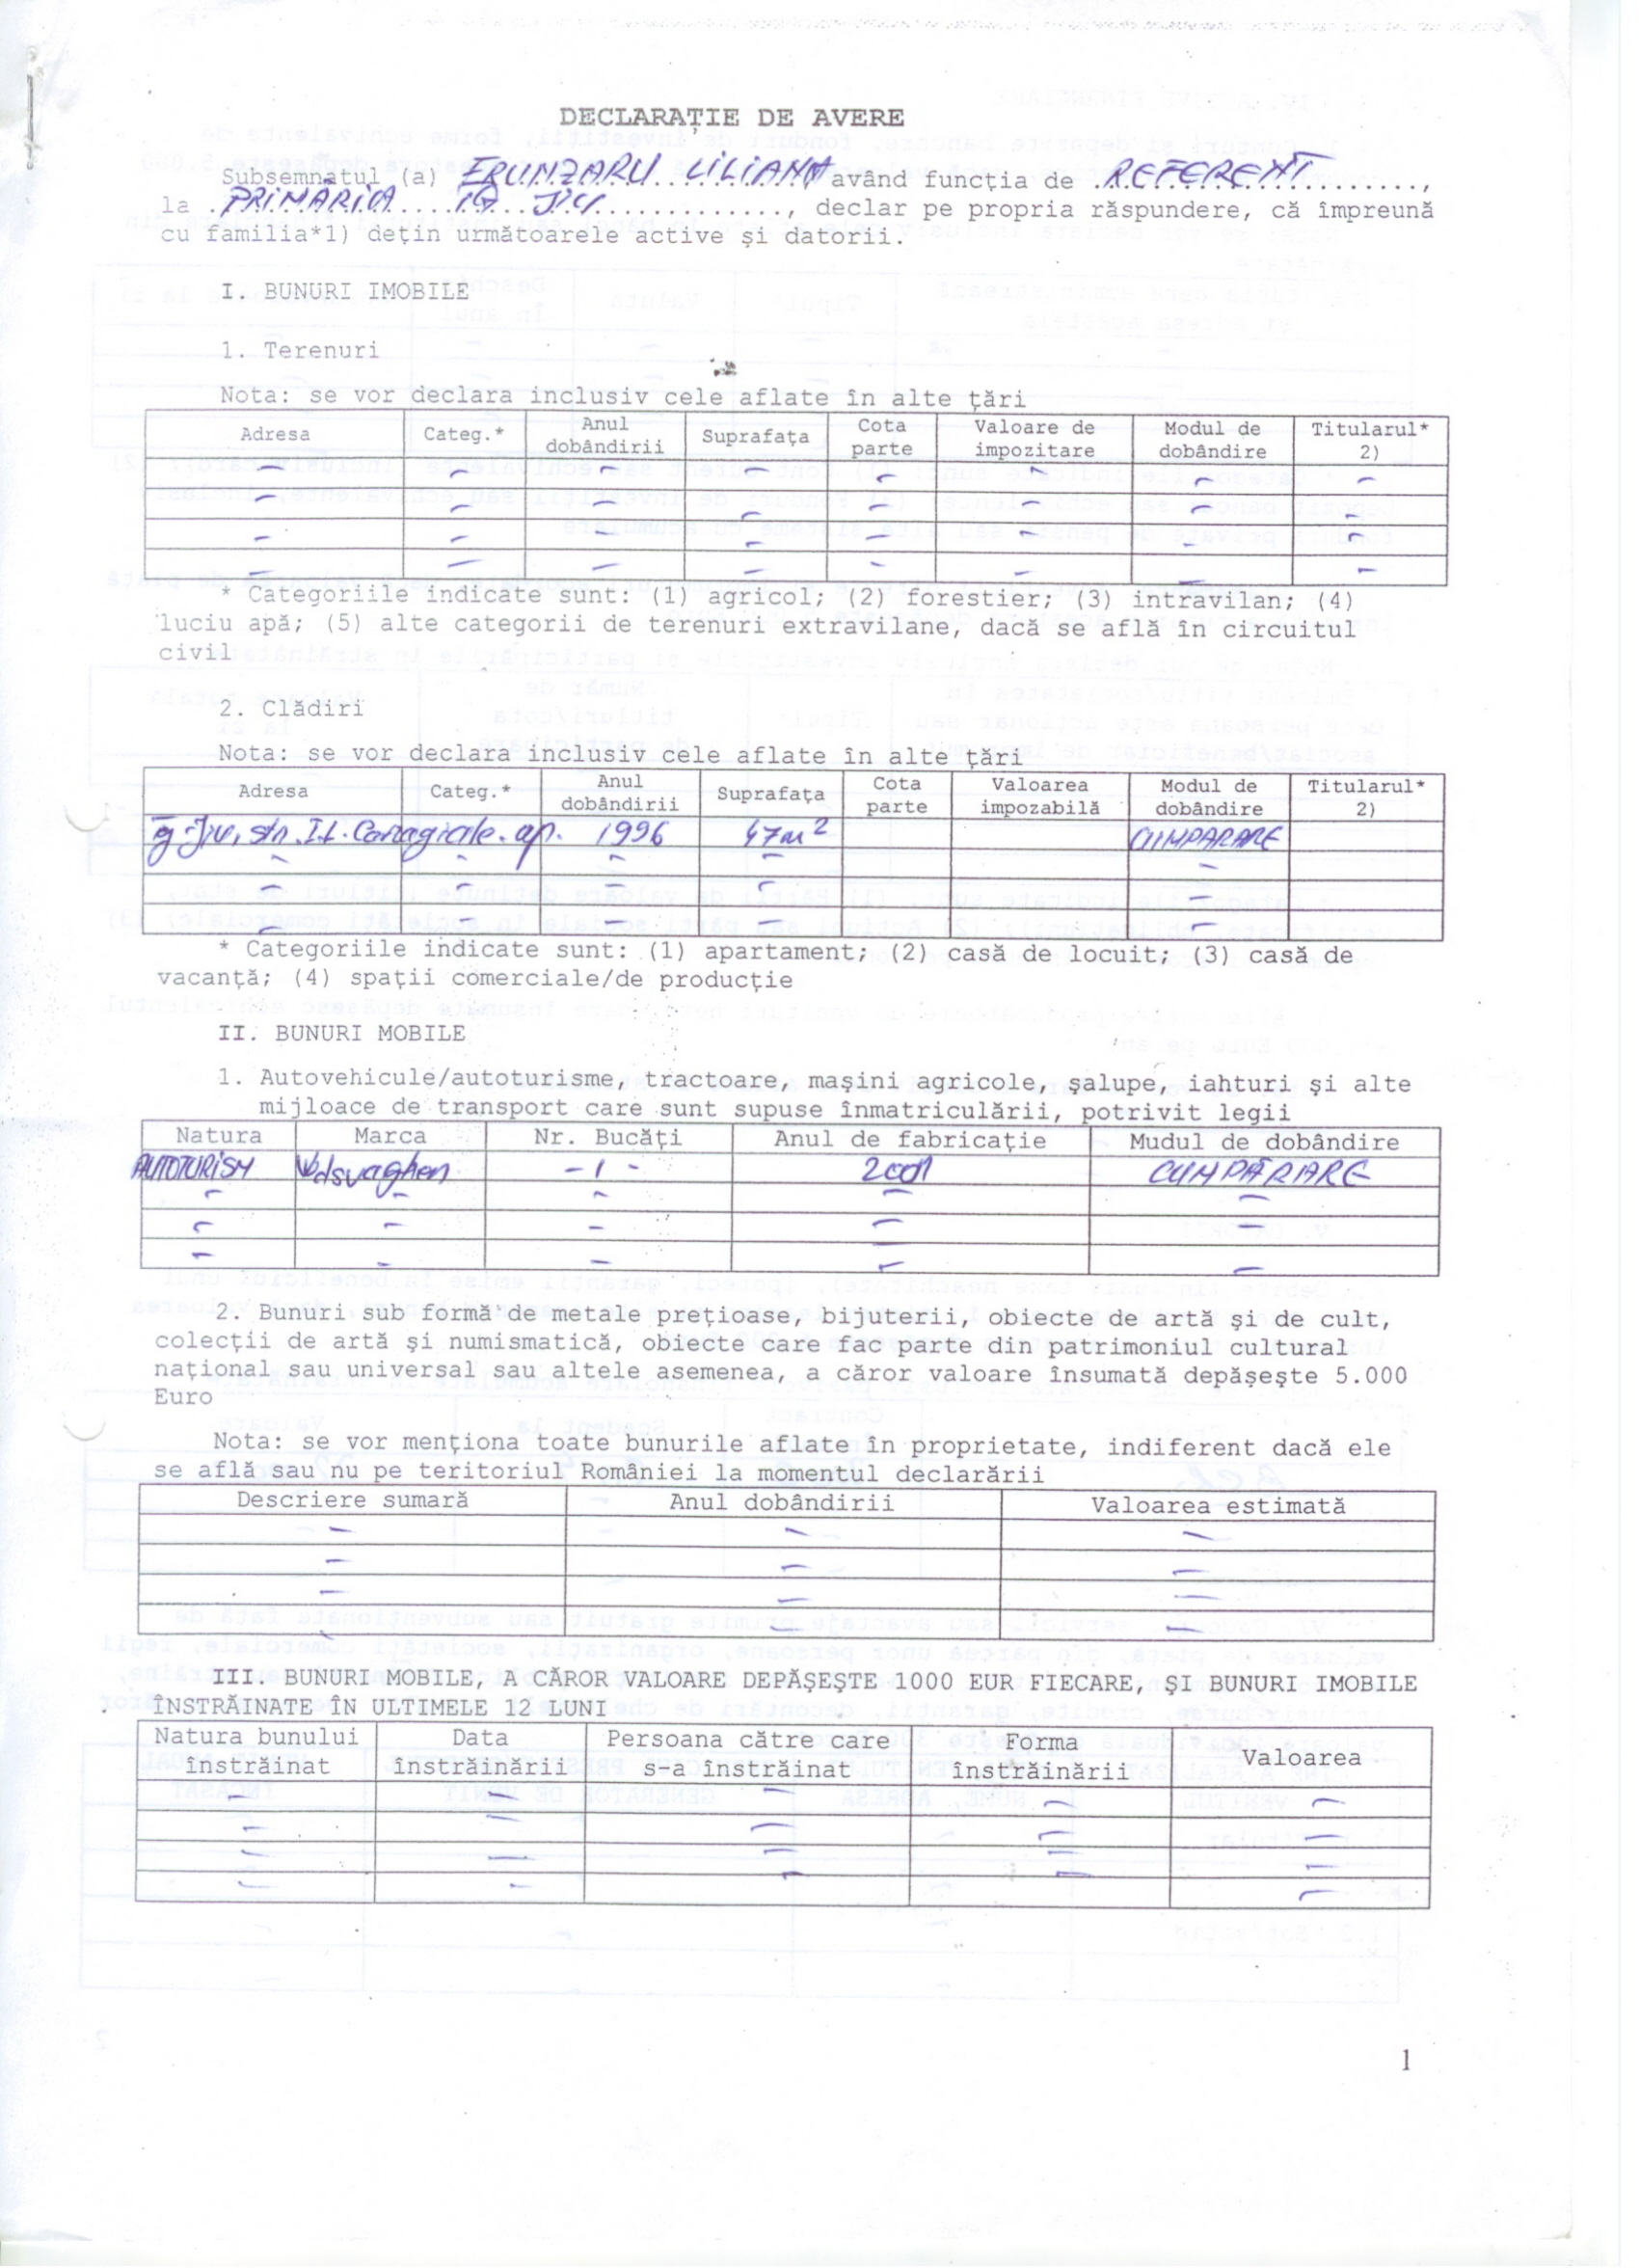 DECLARAŢIE DE AVERE
Subsemnatul (a) FRUNZARU LILIANA având funcţia de REFERENT,
la PRIMĂRIA TG JIU, declar pe propria răspundere, că împreună
cu familia*1) deţin următoarele active şi datorii.
I. BUNURI IMOBILE
1. Terenuri
Nota: se vor declara inclusiv cele aflate în alte ţări
Adresa Categ.* Anul dobândirii Suprafaţa Cota parte Valoare de impozitare Modul de dobândire Titularul* 2)
– – – – – – – –
– – – – – – – –
– – – – – – – –
– – – – – – –
* Categoriile indicate sunt: (1) agricol; (2) forestier; (3) intravilan; (4)
luciu apă; (5) alte categorii de terenuri extravilane, dacă se află în circuitul
civil
2. Clădiri
Nota: se vor declara inclusiv cele aflate în alte ţări
Adresa Categ.* Anul dobândirii Suprafaţa Cota parte Valoarea impozabilă Modul de dobândire Titularul* 2)
Tg-Jiu, str. I.L. Caragiale. ap. 1996 47m2 CUMPARARE
– – – – –
– – – – –
– – – – –
* Categoriile indicate sunt: (1) apartament; (2) casă de locuit; (3) casă de
vacanţă; (4) spaţii comerciale/de producţie
II. BUNURI MOBILE
1. Autovehicule/autoturisme, tractoare, maşini agricole, şalupe, iahturi şi alte
mijloace de transport care sunt supuse înmatriculării, potrivit legii
Natura Marca Nr. Bucăţi Anul de fabricaţie Mudul de dobândire
AUTOTURISM Wolsvaghen - 1 - 2001 CUMPĂRARE
– – – – –
– – – – –
– – – – –
2. Bunuri sub formă de metale preţioase, bijuterii, obiecte de artă şi de cult,
colecţii de artă şi numismatică, obiecte care fac parte din patrimoniul cultural
naţional sau universal sau altele asemenea, a căror valoare însumată depăşeşte 5.000
Euro
Nota: se vor menţiona toate bunurile aflate în proprietate, indiferent dacă ele
se află sau nu pe teritoriul României la momentul declarării
Descriere sumară Anul dobândirii Valoarea estimată
– – –
– – –
– – –
– – –
III. BUNURI MOBILE, A CĂROR VALOARE DEPĂŞEŞTE 1000 EUR FIECARE, ŞI BUNURI IMOBILE
ÎNSTRĂINATE ÎN ULTIMELE 12 LUNI
Natura bunului înstrăinat Data înstrăinării Persoana către care s-a înstrăinat Forma înstrăinării Valoarea
– – – – –
– – – – –
– – – – –
– – – – –
1